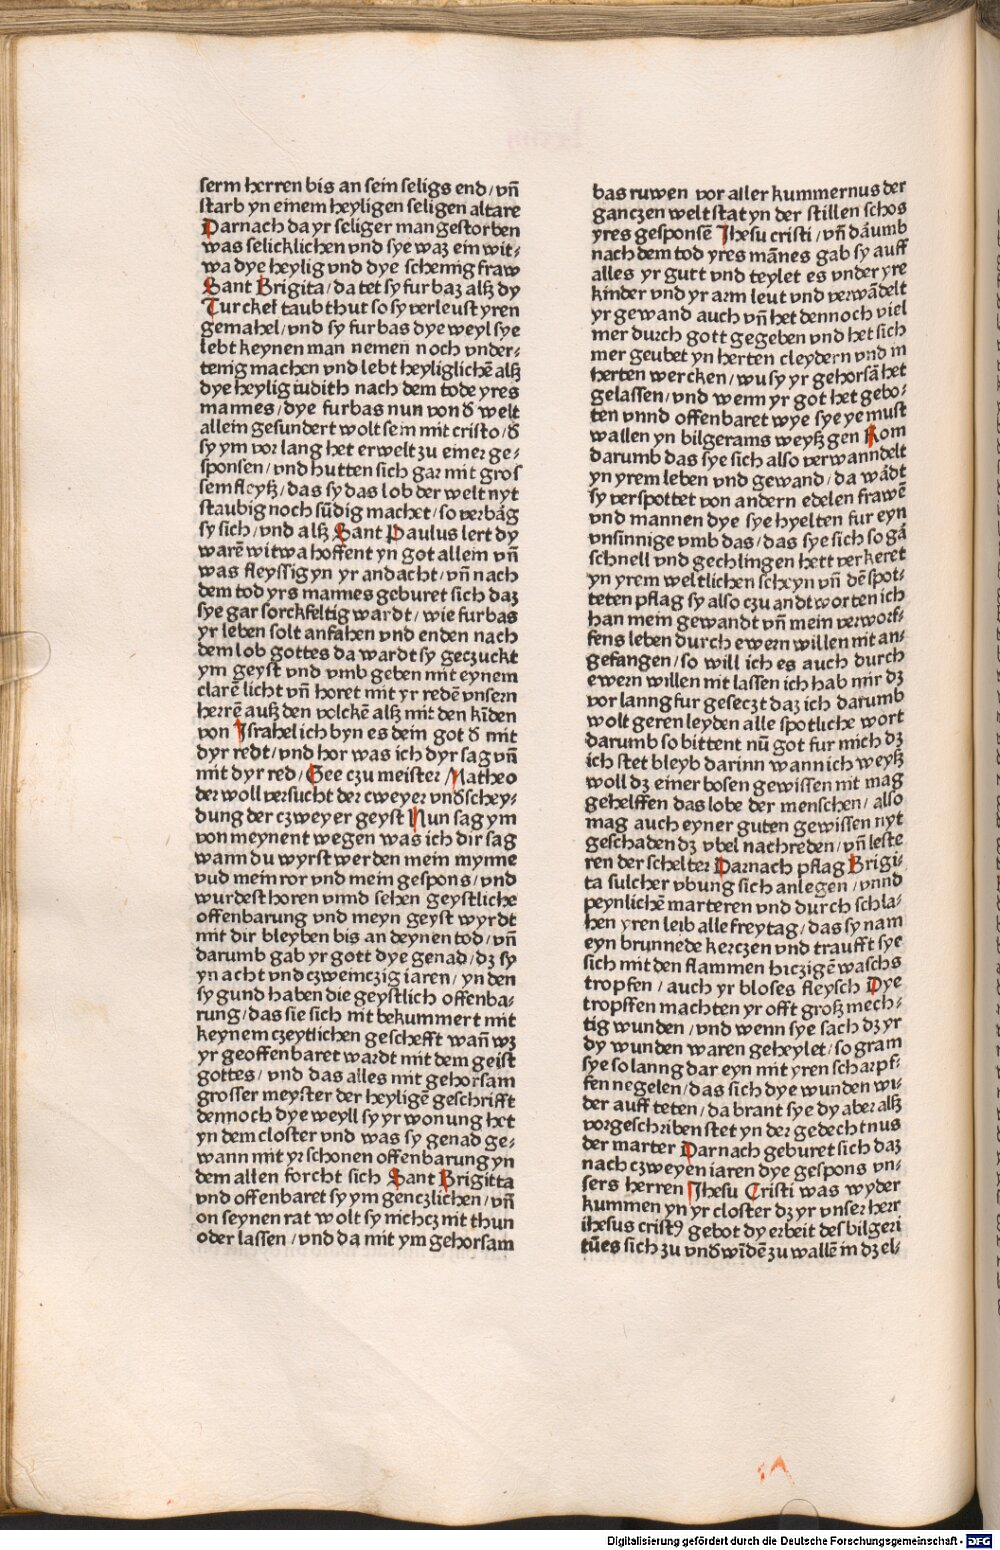 serm herren bis an sein seligs end/vñ
starb yn einem heyligen seligen altare
Darnach da yr seliger man gestorben
was selicklichen vnd sye waz ein wit-
wa dye heylig vnd dye schenig fraw
Sant Brigita/da tet sy furbaz alß dy
Turckel taub thut so sy verleust yren
gemahel/vnd sy furbas dye weyl sye
lebt keynen man nemen noch vnder-
tenig machen vnd lebt heyliglichē alß
dye heylig iudith nach dem tode yres
mannes/dye furbas nun von d̄ welt
allein gesundert wolt sein mit cristo/d̄
sy ym vor lang het erwelt zu einer ge-
sponsen/vnd hutten sich gar mit gros
sem fleyß/das sy das lob der welt nyt
staubig noch sūdig machet/so verbāg
sy sich/vnd alß Sant Paulus lert dy
warē witwa hoffent yn got allein vñ
was fleyssig yn yr andacht/vñ nach
dem tod yrs mannes geburet sich daz
sye gar sorckfeltig wardt/wie furbas
yr leben solt anfahen vnd enden nach
dem lob gottes da wardt sy geczuckt
ym geyst vnd vmb geben mit eynem
clarē licht vñ horet mit yr redē vnsern
herrē auß den volckē alß mit den kīden
von Israhel ich byn es dein got d̄ mit
dyr redt/vnd hor was ich dyr sag vñ
mit dyr red/Gee czu meister Matheo
der woll versucht der cweyer vnd̄ schey-
dung der czweyer geyst Nun sag ym
von meynent wegen was ich dir sag
wann du wyrst werden mein mynne
vud mein ror vnd mein gespons/vnd
wurdest horen vnnd sehen geystliche
offenbarung vnd meyn geyst wyrdt
mit dir bleyben bis an deynen tod/vñ
darumb gab yr gott dye genad/dz sy
yn acht vnd czweinczig iaren/yn den
sy gund haben die geystlich offenba-
rung/das sie sich nit bekummert mit
keynem czeytlichen gescheft wañ wz
yr geoffenbaret wardt mit dem geist
gottes/vnd das alles mit gehorsam
grosser meyster der heyligē geschrifft
dennoch dye weyll sy yr wonung het
yn dem closter vnd was sy genad ge-
wann mit yr schonen offenbarung yn
dem allen forcht sich Sant Brigitta
vnd offenbaret sy ym genczlichen/vñ
on seynen rat wolt sy nichcz nit thun
oder lassen/vnd da mit ym gehorsam
bas ruwen vor aller kummernus der
ganczen welt stat yn der stillen schos
yres gesponsē Jhesu cristi/vñ dāumb
nach dem tod yres māñes gab sy auff
alles yr gutt vnd teylet es vnder yre
kinder vnd yr arm leut vnd verwādelt
yr gewand auch vñ het dennoch viel
mer durch gott gegeben vnd het sich
mer geubet yn herten cleydern vnd in
herten wercken/wu sy yr gehorsā het
gelassen/vnd wenn yr got het gebo-
ten vnnd offenbaret wye sye ye must
wallen yn bilgerams weyß gen Rom
darumb das sye sich also verwanndelt
yn yrem leben vnd gewand/da wādt
sy verspottet von andern edelen frawē
vnd mannen dye sye hyelten fur eyn
vnsinnige vmb das/das sye sich so gā
schnell vnd gechlingen hett verkeret
yn yrem weltlichen scheyn vñ dē spot-
teten pflag sy also czu andtworten ich
han mein gewandt vñ mein verworf-
fens leben durch ewern willen nit an-
gefangen/so will ich es auch durch
ewern willen nit lassen ich hab mir dz
vor lanng fur geseczt daz ich darumb
wolt geren leyden alle spotliche wort
darumb so bittent nū got fur mich dz
ich stet bleyb darinn wann ich weyß
woll dz einer bosen gewissen nit mag
gehelffen das lobe der menschen/also
mag auch eyner guten gewissen nyt
geschaden dz vbel nachreden/vñ leste
ren der schelter Darnach pflag Brigi-
ta sulcher vbung sich anlegen/vnnd
peynlichen marteren vnd durch schla-
hen yren leib alle freytag/das sy nam
eyn brunnede kerczen vnd traufft sye
sich mit den flammen hiczigē waschs
tropfen/auch yr bloses fleysch Dye
tropffen machten yr offt groß mech-
tig wunden/vnd wenn sye sach dz yr
dy wunden waren geheylet/so gram
sye so lanng dar eyn mit yren scharpf-
fen negelen/das sich dye wunden wi-
der auff teten/da brant sye dy aber alß
vorgeschriben stet yn der gedechtnus
der marter Darnach geburet sich daz
nach czweyen iaren dye gespons vn-
sers herren Jhesu Cristi was wyder
kummen yn yr closter dz yr vnser herr
ihesus cristꝰ gebot dy erbeit des bilgeri
tūes sich zu vnd̄wīdē zu wallē in dz el-
Digitalisierung gefördert durch die Deutsche Forschungsgemeinschaft - DFG